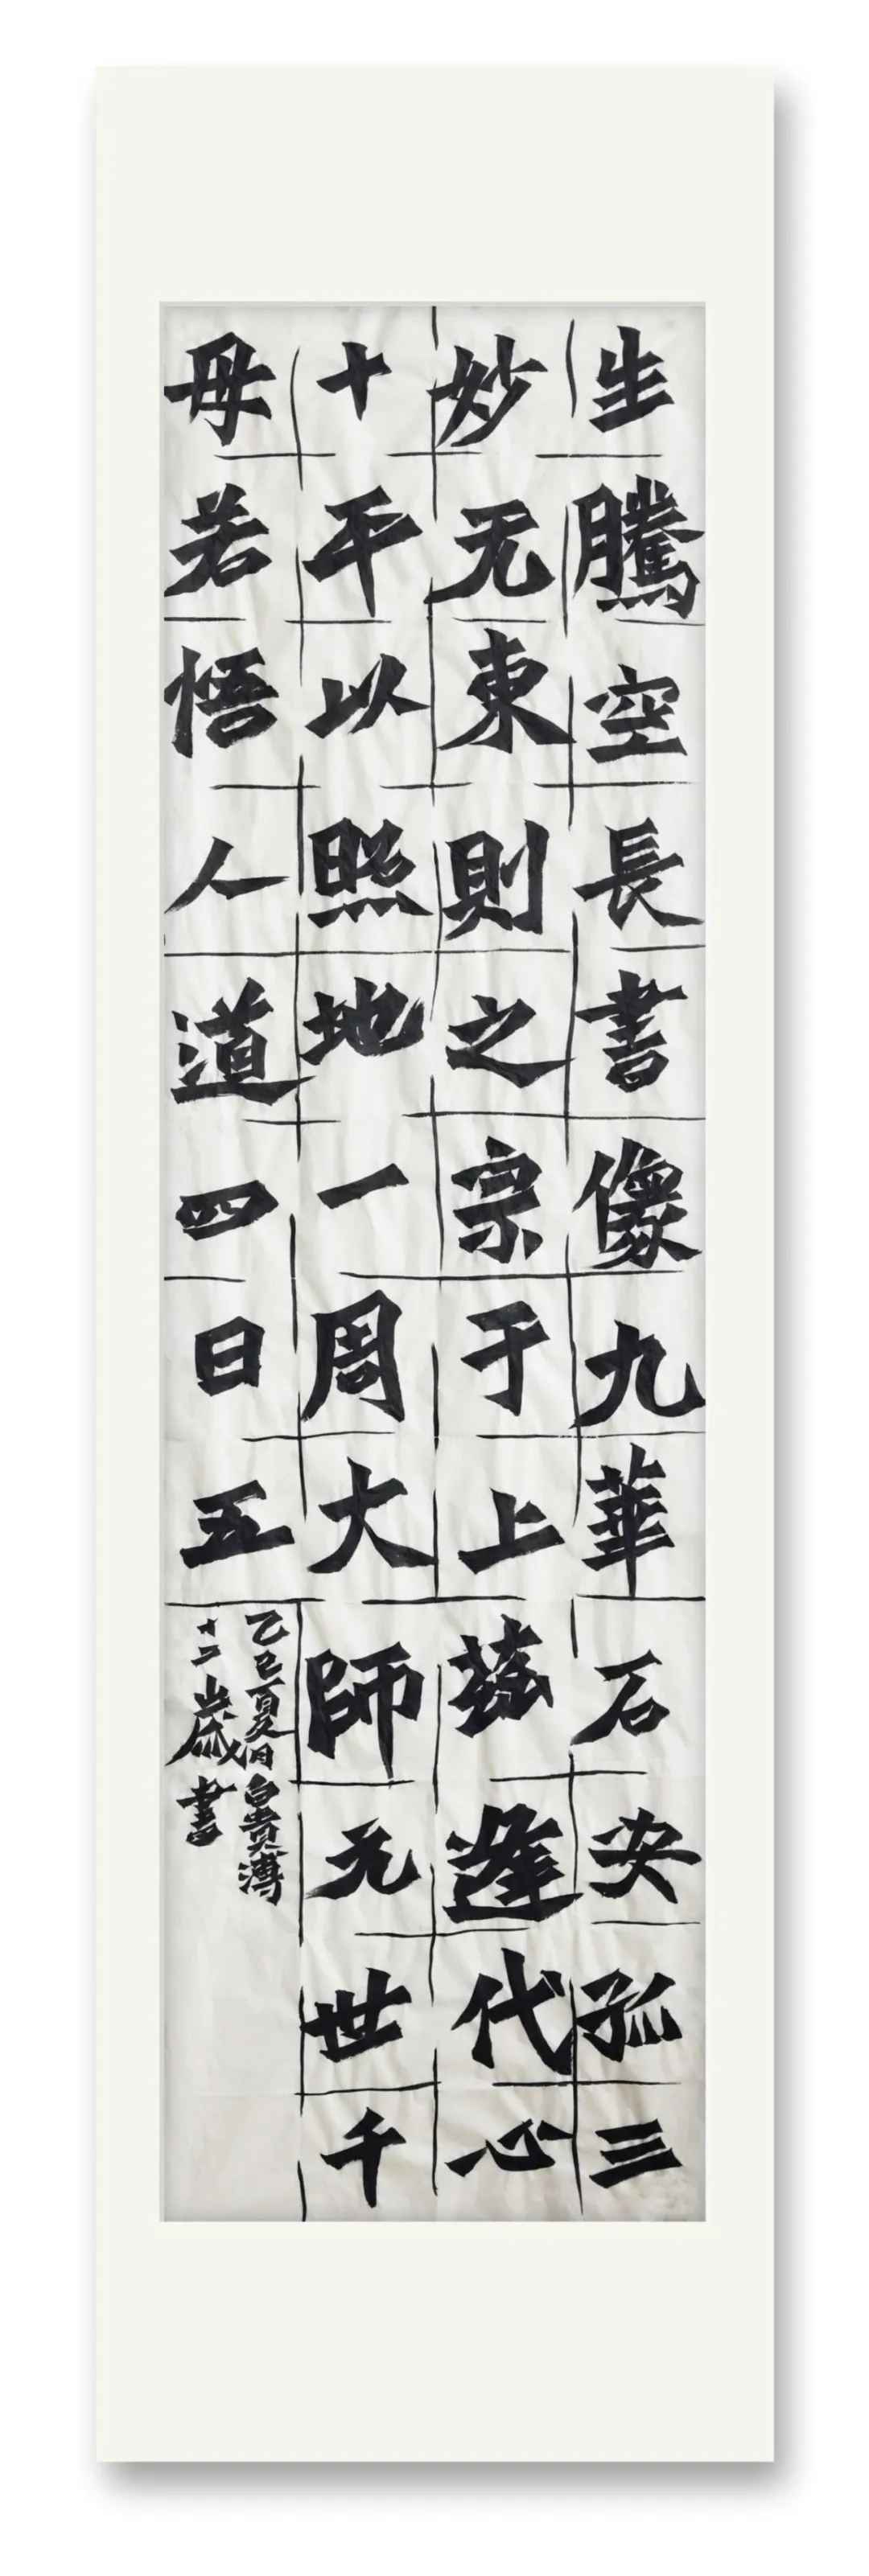 生騰空長書像九華石安孤三
妙无東則之宗于上茲逢代心
十平以照地一周大師无世千
母若悟人道四日五
乙巳夏日白貴溥
十二歲書